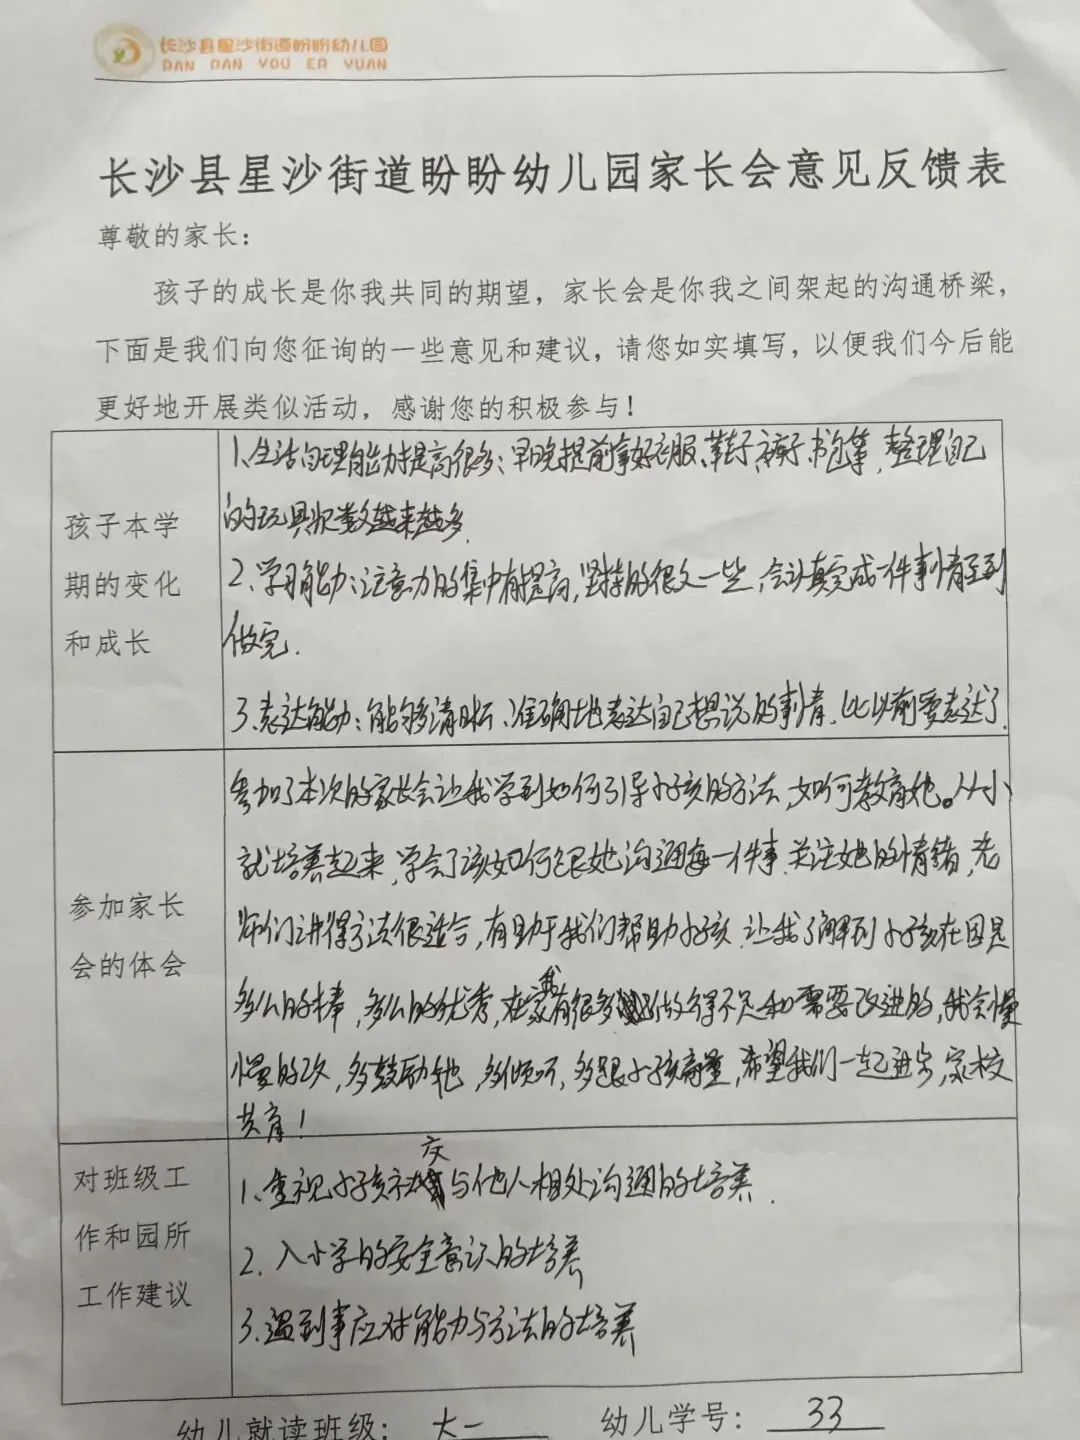 长沙县星沙街道盼盼幼儿园
PAN PAN YOU ER YUAN
长沙县星沙街道盼盼幼儿园家长会意见反馈表
尊敬的家长：
孩子的成长是你我共同的期望，家长会是你我之间架起的沟通桥梁，
下面是我们向您征询的一些意见和建议，请您如实填写，以便我们今后能
更好地开展类似活动，感谢您的积极参与！
孩子本学
期的变化
和成长
1、生活自理能力提高很多：早晚提前拿好衣服、鞋子、裤子、书包等，整理自己
的玩具次数越来越多.
2、学习能力：注意力的集中有提高，坚持的很久一些，会认真完成一件事情至到
做完.
3、表达能力：能够清晰、准确地表达自己想说的事情，比以前要表达了.
参加家长
会的体会
参加了本次的家长会让我学到如何引导小孩的方法，如何教育她。从小
就培养起来，学会了该如何跟她沟通每一件事.关注她的情绪，老
师们讲得方法很适合，有助于我们帮助小孩.让我了解到小孩在园是
多么的棒，多么的优秀，在家我有很多做得不足和需要改进的，我会慢
慢的改，多鼓励她，多倾听，多跟小孩商量，希望我们一起进步，家校
共育！
对班级工
作和园所
工作建议
1、重视小孩社交与他人相处沟通的培养.
2、入小学的安全意识的培养
3、遇到事应对能力与方法的培养
幼儿就读班级：大一 幼儿学号：33